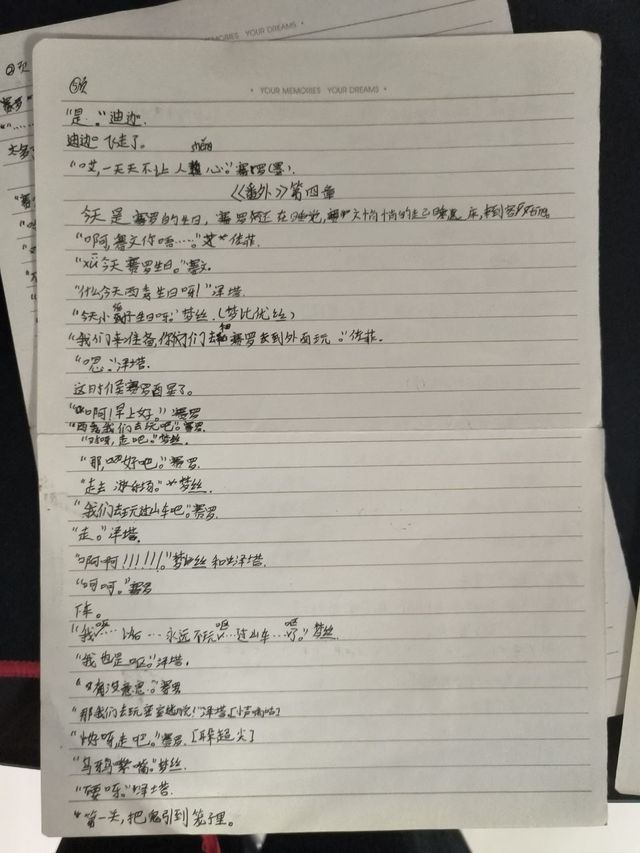 MEMORIES YOUR DREAMS •
②页
⑤页
• YOUR MEMORIES YOUR DREAMS •
"是。"迪迦.
迪迦飞走了。
shěng
"哎,一天天不让人 心。"赛罗(黑).
《番外》第四章
今天是赛罗的生日,赛罗还在睡觉,赛文悄悄的走 床,来到客厅
"啊,赛文你唔……"艾 佳菲.
"xū 今天赛罗生日。"赛文.
"什么今天两 生日呀!"泽塔.
"今天小 子生日呀."梦丝.(梦比优丝)
"我们来准备,你们 去 赛罗去到外面玩。"佐菲.
"嗯."泽塔.
这时候赛罗酉星了。
"啊!早上好。"赛罗
"两 我们去玩吧。"赛罗.
"好呀,走吧。"梦丝.
"那,好吧。"赛罗.
"走去游乐场。"梦丝.
"我们去玩过山车吧。"赛罗.
"走。"泽塔.
"啊啊!!!!!!。"梦丝和泽塔.
"呵呵。"赛罗
下车。
"我呕…… 以后…永远不玩呕…过山车…呕了。"梦丝.
"我也是呕。"泽塔.
"没有没意思。"赛罗
"那我们去玩密室逃脱!"泽塔[小声嘀咕]
"好呀,走吧。"赛罗.[耳朵超尖]
"乌鸦嘴嘴。"梦丝.
"要乐."泽塔.
"第一关,把鬼引到笼子里。